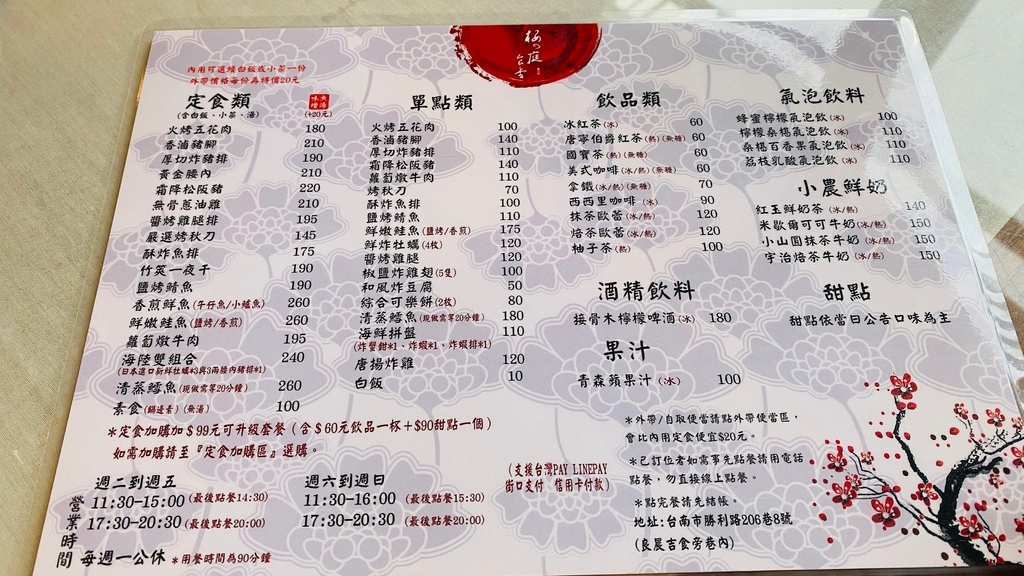 桜の庭
食堂
內用可選續白飯或小菜一份
外帶價格每份再特價20元
定食類
(含白飯、小菜、湯)
味噌魚湯 (+20元)
火烤五花肉 180
香滷豬腳 210
厚切炸豬排 190
黃金腰內 210
霜降松阪豬 220
無骨蔥油雞 210
醬烤雞腿排 195
嚴選烤秋刀 145
酥炸魚排 175
竹筴一夜干 190
鹽烤鯖魚 190
香煎鮮魚(午仔魚/小鱸魚) 260
鮮嫩鮭魚(鹽烤/香煎) 260
蘿蔔燉牛肉 195
海陸雙組合 240
(日本進口新鮮牡蠣*3與3兩腰內豬排*1)
清蒸鱈魚(現做需等20分鐘) 260
素食(鍋邊素)(無湯) 100
單點類
火烤五花肉 100
香滷豬腳 140
厚切炸豬排 110
霜降松阪豬 140
蘿蔔燉牛肉 110
烤秋刀 70
酥炸魚排 100
鹽烤鯖魚 110
鮮嫩鮭魚(鹽烤/香煎) 175
鮮炸牡蠣(4枚) 120
醬烤雞腿 120
椒鹽炸雞翅(5隻) 100
和風炸豆腐 50
綜合可樂餅(2枚) 80
清蒸鱈魚(現做需等20分鐘) 180
海鮮拼盤 110
(炸蟹鉗*1、炸蝦*1、炸蝦排*1)
唐揚炸雞 120
白飯 10
飲品類
冰紅茶(冰) 60
唐寧伯爵紅茶(熱)(無糖) 60
國寶茶(熱)(無糖) 60
美式咖啡(冰/熱)(無糖) 60
拿鐵(冰/熱)(無糖) 70
西西里咖啡(冰) 90
抹茶歐蕾(冰/熱) 120
焙茶歐蕾(冰/熱) 120
柚子茶(熱) 100
酒精飲料
接骨木檸檬啤酒(冰) 180
果汁
青森蘋果汁(冰) 100
氣泡飲料
蜂蜜檸檬氣泡飲(冰) 100
檸檬桑椹氣泡飲(冰) 110
桑椹百香果氣泡飲(冰) 110
荔枝乳酸氣泡飲(冰) 110
小農鮮奶
紅玉鮮奶茶(冰/熱) 140
米歇爾可可牛奶(冰/熱) 150
小山園抹茶牛奶(冰/熱) 150
宇治焙茶牛奶(冰/熱) 150
甜點
甜點依當日公告口味為主
*定食加購加$99元可升級套餐(含$60元飲品一杯+$90甜點一個)
如需加購請至『定食加購區』選購。
營業時間
週二到週五
11:30-15:00(最後點餐14:30)
17:30-20:30(最後點餐20:00)
週六到週日
11:30-16:00(最後點餐15:30)
17:30-20:30(最後點餐20:00)
每週一公休 *用餐時間為90分鐘
(支援台灣PAY LINEPAY
街口支付 信用卡付款)
*外帶/自取便當請點外帶便當區,
會比內用定食便宜$20元。
*已訂位者如需事先點餐請用電話
點餐,勿直接線上點餐。
*點完餐請先結帳。
地址:台南市勝利路206巷8號
(良晨吉食旁巷內)